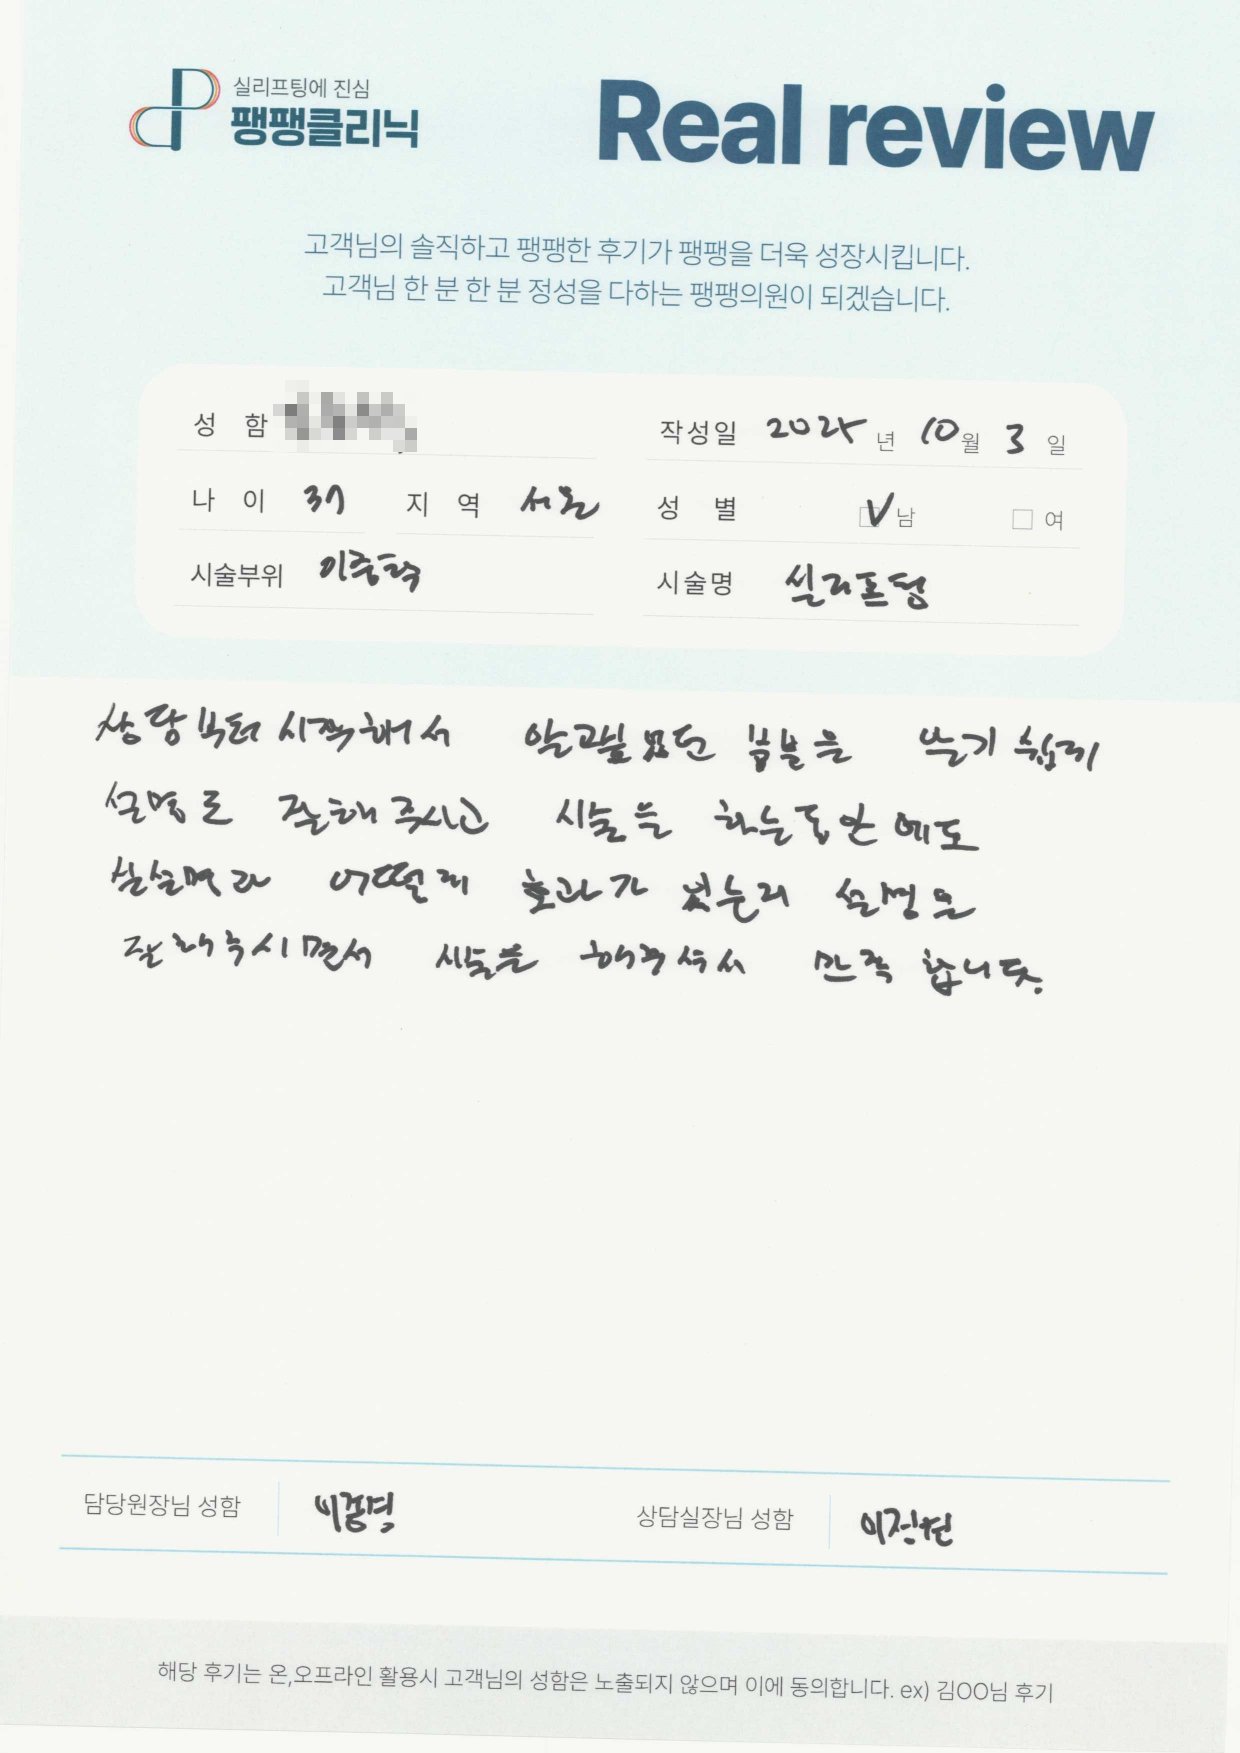 실리프팅에 진심
팽팽클리닉
Real review
고객님의 솔직하고 팽팽한 후기가 팽팽을 더욱 성장시킵니다.
고객님 한 분 한 분 정성을 다하는 팽팽의원이 되겠습니다.
성 함
작성일 2025 년 10 월 3 일
나 이 37 지 역 서울 성 별 V 남 여
시술부위 이중턱 시술명 실리프팅
상담부터 시작해서 부분을 알기 쉽게
설명도 잘해주시고 시술을 하는동안에도
어떻게 효과가 있는지 설명을
잘해주시면서 시술을 해주셔서 만족합니다.
담당원장님 성함 상담실장님 성함
해당 후기는 온,오프라인 활용시 고객님의 성함은 노출되지 않으며 이에 동의합니다. ex) 김OO님 후기